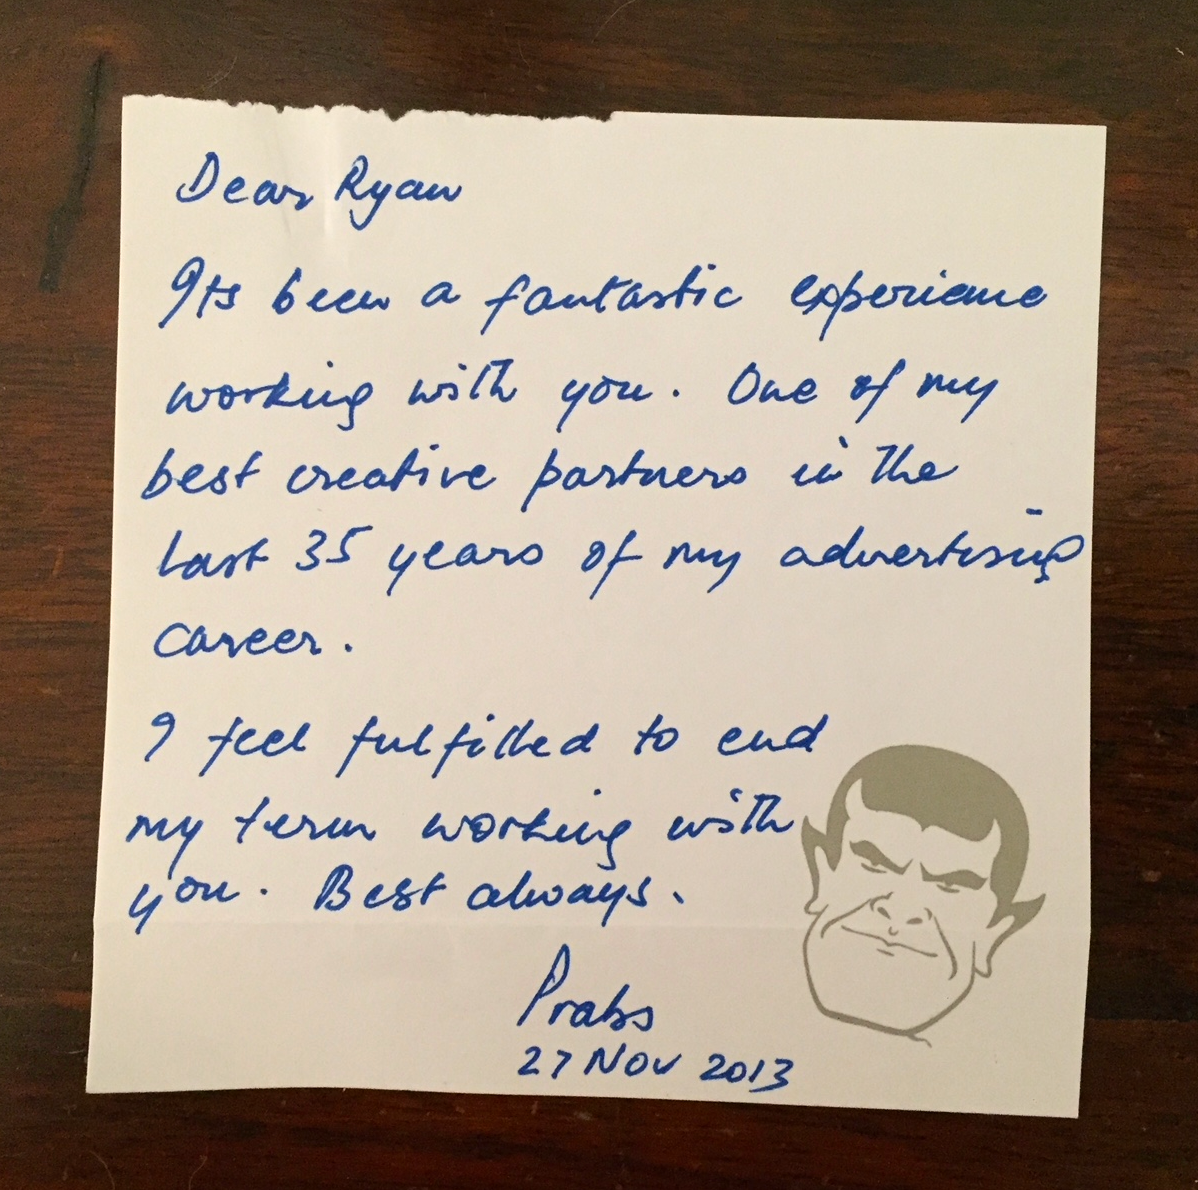 Dear Ryan
Its been a fantastic experience
working with you. One of my
best creative partners in the
last 35 years of my advertising
career.
I feel fulfilled to end
my term working with
you. Best always.
Prabs
27 Nov 2013